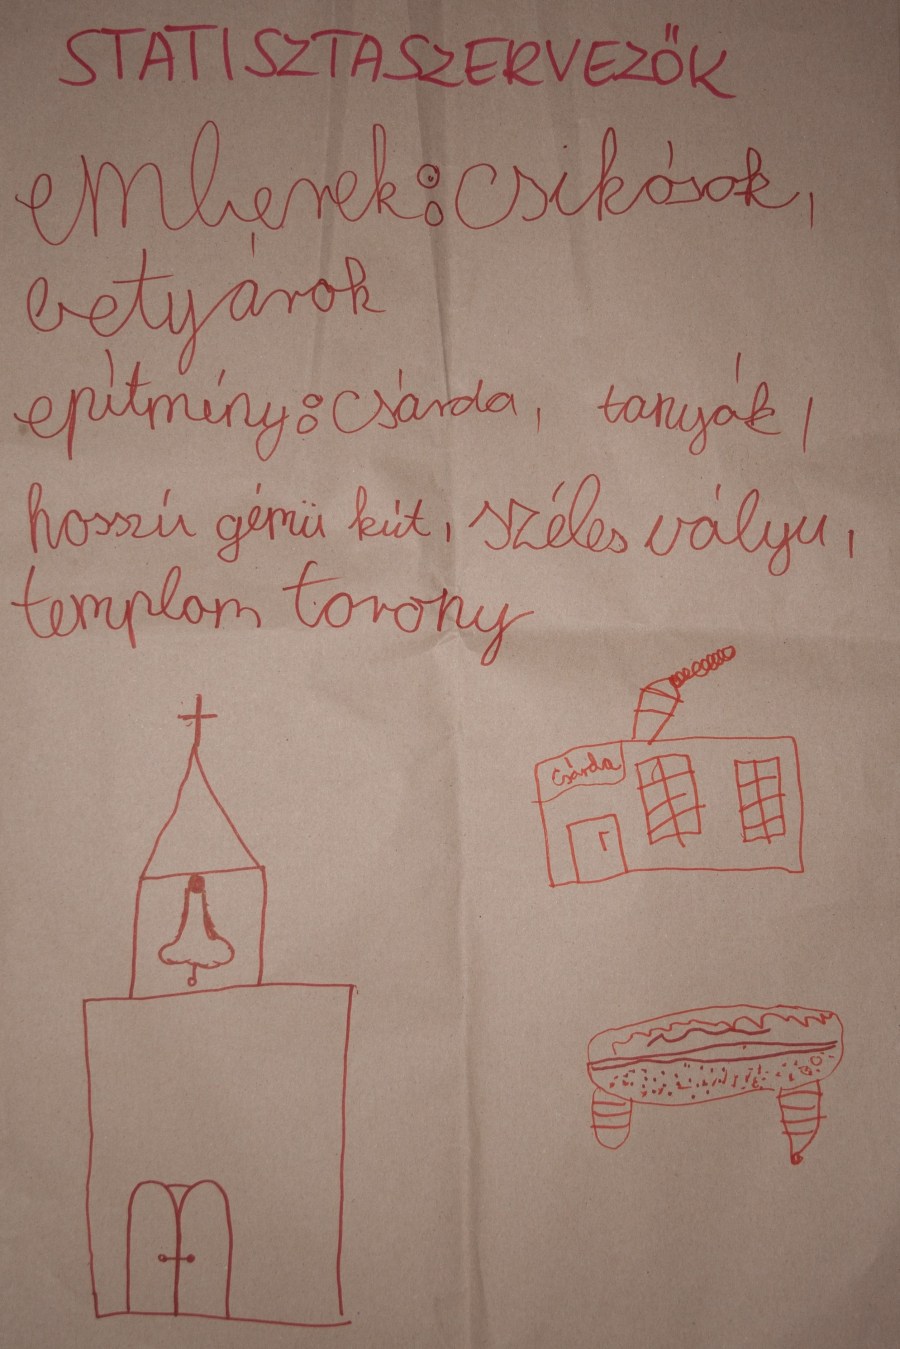 STATISZTASZERVEZŐK
emberek: csikósok,
betyárok
epítmény: csárda, tanyák,
hosszú gémü kút, széles vályu,
templom torony
csárda